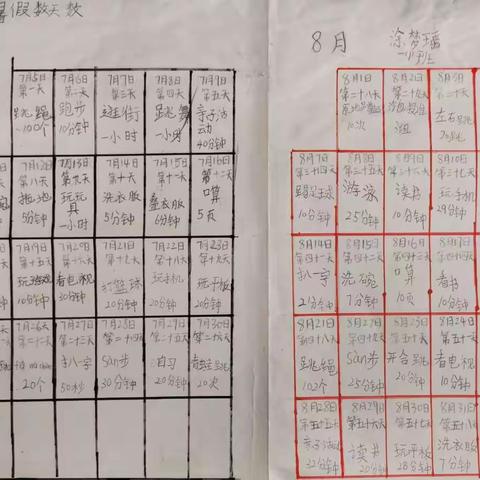 暑假数天数
7月5日 7月6日 7月7日 7月8日 7月9日
第一天 第二天 第三天 第四天 第五天
跳绳 跑步 逛街 跳舞 亲子活动
100个 10分钟 一小时 一小时 40分钟
7月12日 7月13日 7月14日 7月15日 7月16日
第八天 第九天 第十天 第十一天 第十二天
拖地 玩玩具 洗衣服 叠衣服 口算
5分钟 一小时 5分钟 6分钟 5页
7月19日 7月20日 7月21日 7月22日 7月23日
第十五天 第十六天 第十七天 第十八天 第十九天
玩游戏 看电视 打篮球 玩手机 玩平板
10分钟 30分钟 20分钟 20分钟 20分钟
7月26天 7月27日 7月28日 7月29日 7月30日
第二十二天
扌八字 San步 自习
20个 50秒 30分钟 20分钟 20次
8月
涂梦瑶
8月1日 8月2日 8月3日
第二十八天 第二十九天 第三十天
10次 左右跳
8月7日 8月8日 8月9日 8月10日
第三十四天 第三十五天 第三十六天 第三十七天
踢足球 游泳 读书 玩手机
10分钟 25分钟 10分钟 29分钟
8月14日 8月15日 8月16日 8月17日
第四十一天 第四十二天 第四十三天
扌八字 洗碗 口算 看书
2分钟 7分钟 10页 10分钟
8月21日 8月22日 8月23日 8月24日
第四十八天 第四十九天 第五十天 第五十一天
跳绳 San步 开合跳 看电视
102个 25分钟 20分钟 10分钟
8月28日 8月29日 8月30日 8月31日
第五十五天 第五十六天 第五十七天 第五十八天
亲子活动 读书 玩平板 洗衣服
32分钟 20分钟 28分钟 7分钟